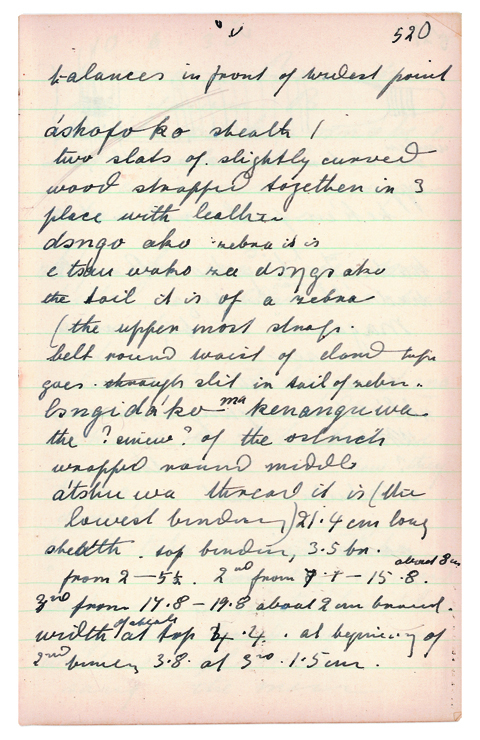 520
balances in front of widest point
áshofo ko sheath /
two slats of slightly curved
wood strapped together in 3
place with leather
dsngo ako zebra it is
e tsau wako dsngo ako
the tail it is of a zebra
(the upper most strap.
belt round waist of
goes through slit in tail of zebra.
ma kenanguwa
the ? sinew ? of the ostrich
wrapped round middle
átshu wa thread it is (the
lowest binding) 21.4 cm long
sheath. top binding, 3.5 br.
about 8 cm
from 2 – 5½. 2nd from 7.1 – 15.8.
3rd from 17.8 – 19.8 about 2 cm broad.
width of sheath at top 4.4. at beginning of
2nd binding 3.8. at 3rd. 1.5 cm.